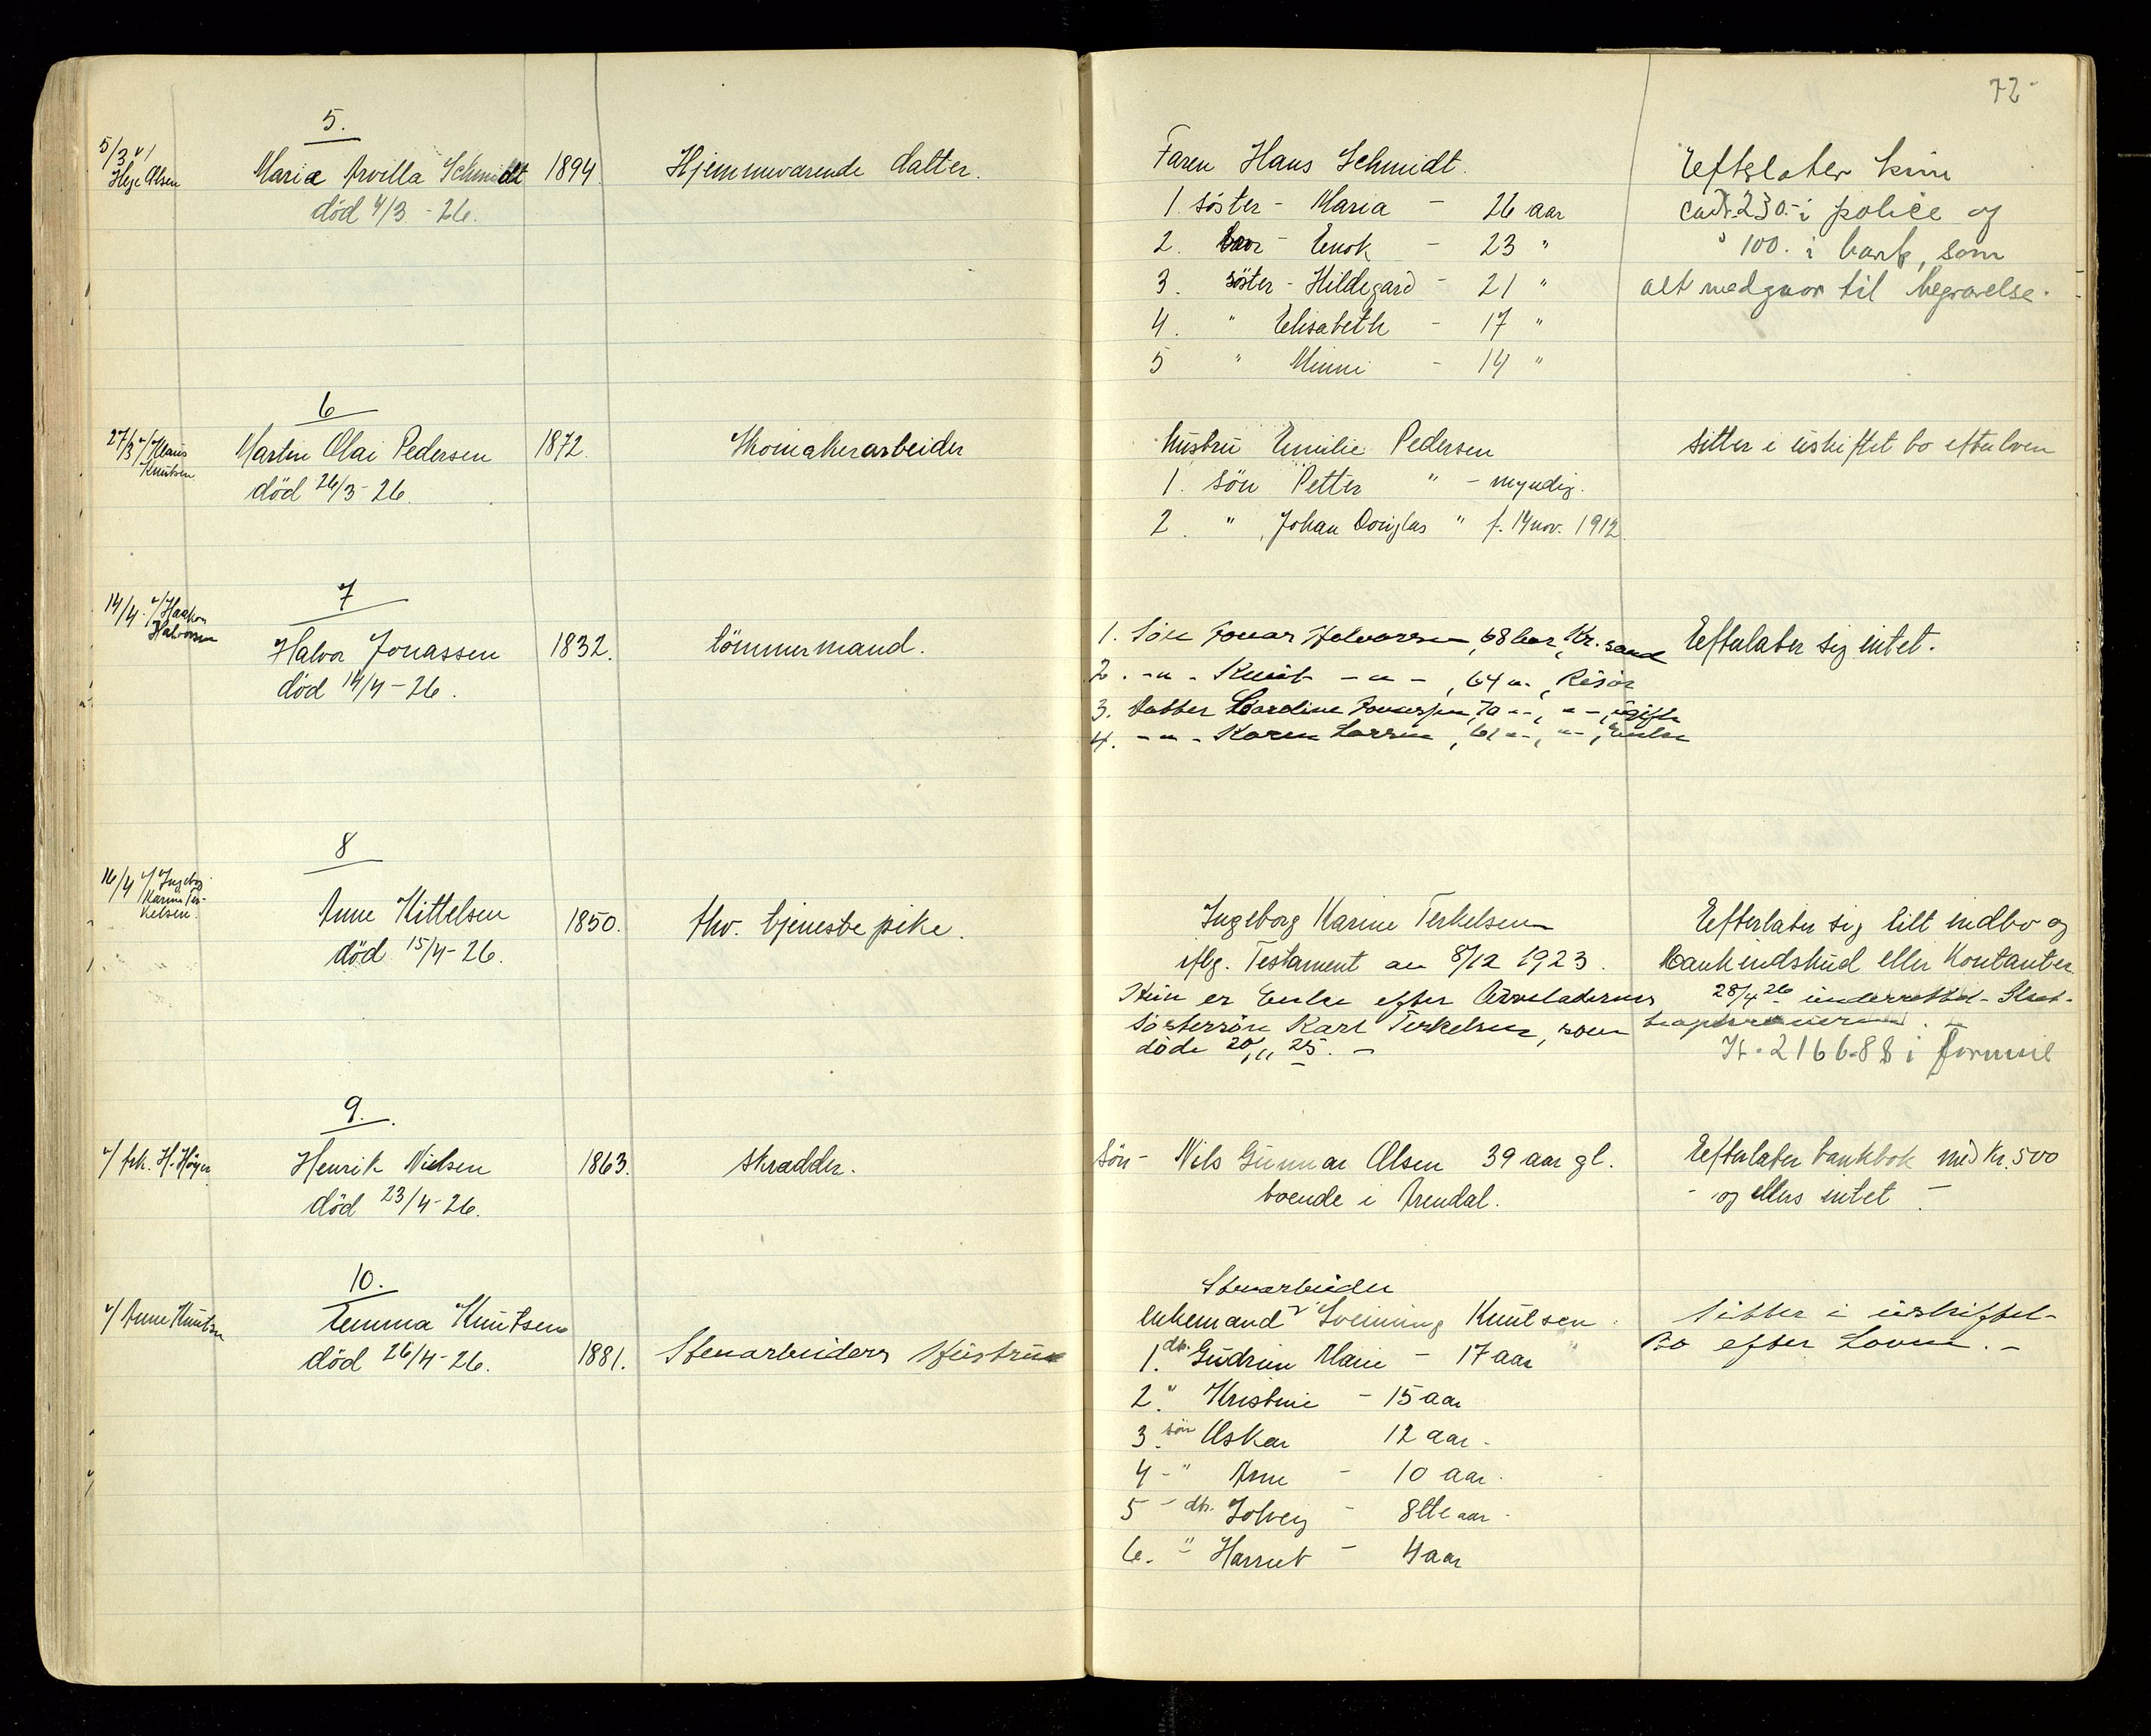 72
5.
5/3 v/
Helje Olsen
Maria Arvilla Schmidt 1894. Hjemmeværende datter.
död 4/3 - 26.
Faren Hans Schmidt.
1. söster - Maria - 26 aar
2. bror - Enok - 23 "
3. söster - Hildegard - 21 "
4. " Elisabeth - 17 "
5 " Minni - 14 "
Efterlater kun
ca kr. 230.- i police og
" 100. i bank, som
alt medgaar til begravelse.
6
27/3 v/ Klaus
Knutsen
Martin Olai Pedersen 1872. Skomakerarbeider
död 26/3 - 26.
hustru Emilie Pedersen
1. sön Petter " - myndig.
2. " Johan Douglas " f. 14 nov. 1912.
sitter i uskiftet bo efter loven
7
14/4. v/ Haakon
Halvorsen
Halvor Jonassen 1832. tömmermand.
död 14/4 - 26.
1. Sön Jonas Halvorsen, 68 aar, Kr.sand
2. -"- Knut -"-, 64 ", Risör
3. Datter Caroline Jonassen, 70 "-, "-, ugift
4. -"- Karen Larsen, 61 "-, "-, Enke
Efterlater sig intet.
8
16/4 v/ Ingeborg
Karine Ter-
kelsen.
Anne Kittelsen 1850. fhv. tjenestepike.
död 15/4 - 26.
Ingeborg Karine Terkelsen
iflg. Testament av 8/12 1923.
Hun er Enke efter Arveladerens
Søstersøn Karl Terkelsen, som
døde 20/11 25. -
Efterlater sig litt indbo og
bankindskud eller Kontanter
28/4 26 underrettet
Kr. 2166.88 i formue
9.
v/ frk. H. Höyer
Henrik Nielsen 1863. skrædder.
död 23/4 - 26.
Sön - Nils Gunnar Olsen 39 aar gl.
boende i Arendal.
Efterlater bankbok med Kr. 500
- og ellers intet -
10.
v/ Anne Knutsen
Emma Knutsen
död 26/4 - 26. 1881. Stenarbeiders Hustru
Stenarbeider
enkemand Sveinung Knutsen.
1. dtr. Gudrun Marie - 17 aar
2. " Kristine - 15 aar
3. sön Oskar 12 aar.
4 - " Arne - 10 aar.
5 - dtr. Solveig - 8tte aar.
6. " Harriet - 4 aar
Sitter i uskiftet
Bo efter Loven. -